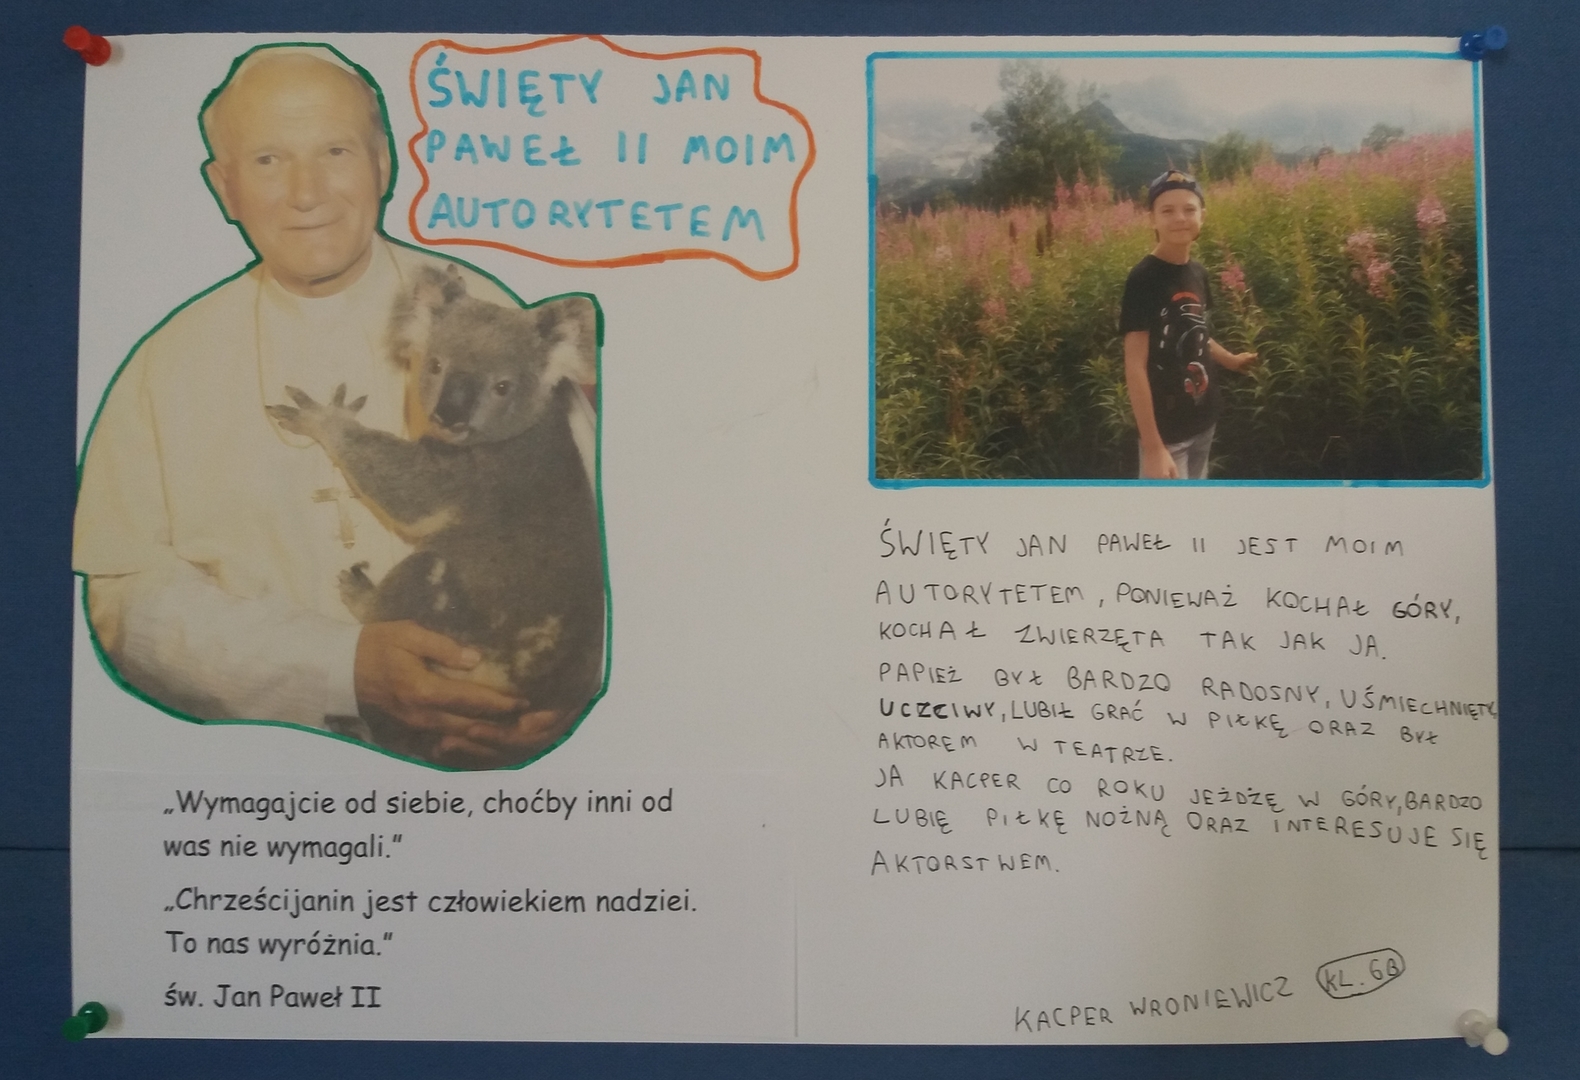 ŚWIĘTY JAN
PAWEŁ II MOIM
AUTORYTETEM
„Wymagajcie od siebie, choćby inni od
was nie wymagali."
„Chrześcijanin jest człowiekiem nadziei.
To nas wyróżnia."
św. Jan Paweł II
ŚWIĘTY JAN PAWEŁ II JEST MOIM
AUTORYTETEM, PONIEWAŻ KOCHAŁ GÓRY,
KOCHAŁ ZWIERZĘTA TAK JAK JA.
PAPIEŻ BYŁ BARDZO RADOSNY, UŚMIECHNIĘTY,
UCZCIWY, LUBIŁ GRAĆ W PIŁKĘ ORAZ BYŁ
AKTOREM W TEATRZE.
JA KACPER CO ROKU JEŻDŻĘ W GÓRY, BARDZO
LUBIĘ PIŁKĘ NOŻNĄ ORAZ INTERESUJE SIĘ
AKTORSTWEM.
KACPER WRONIEWICZ KL. 6B